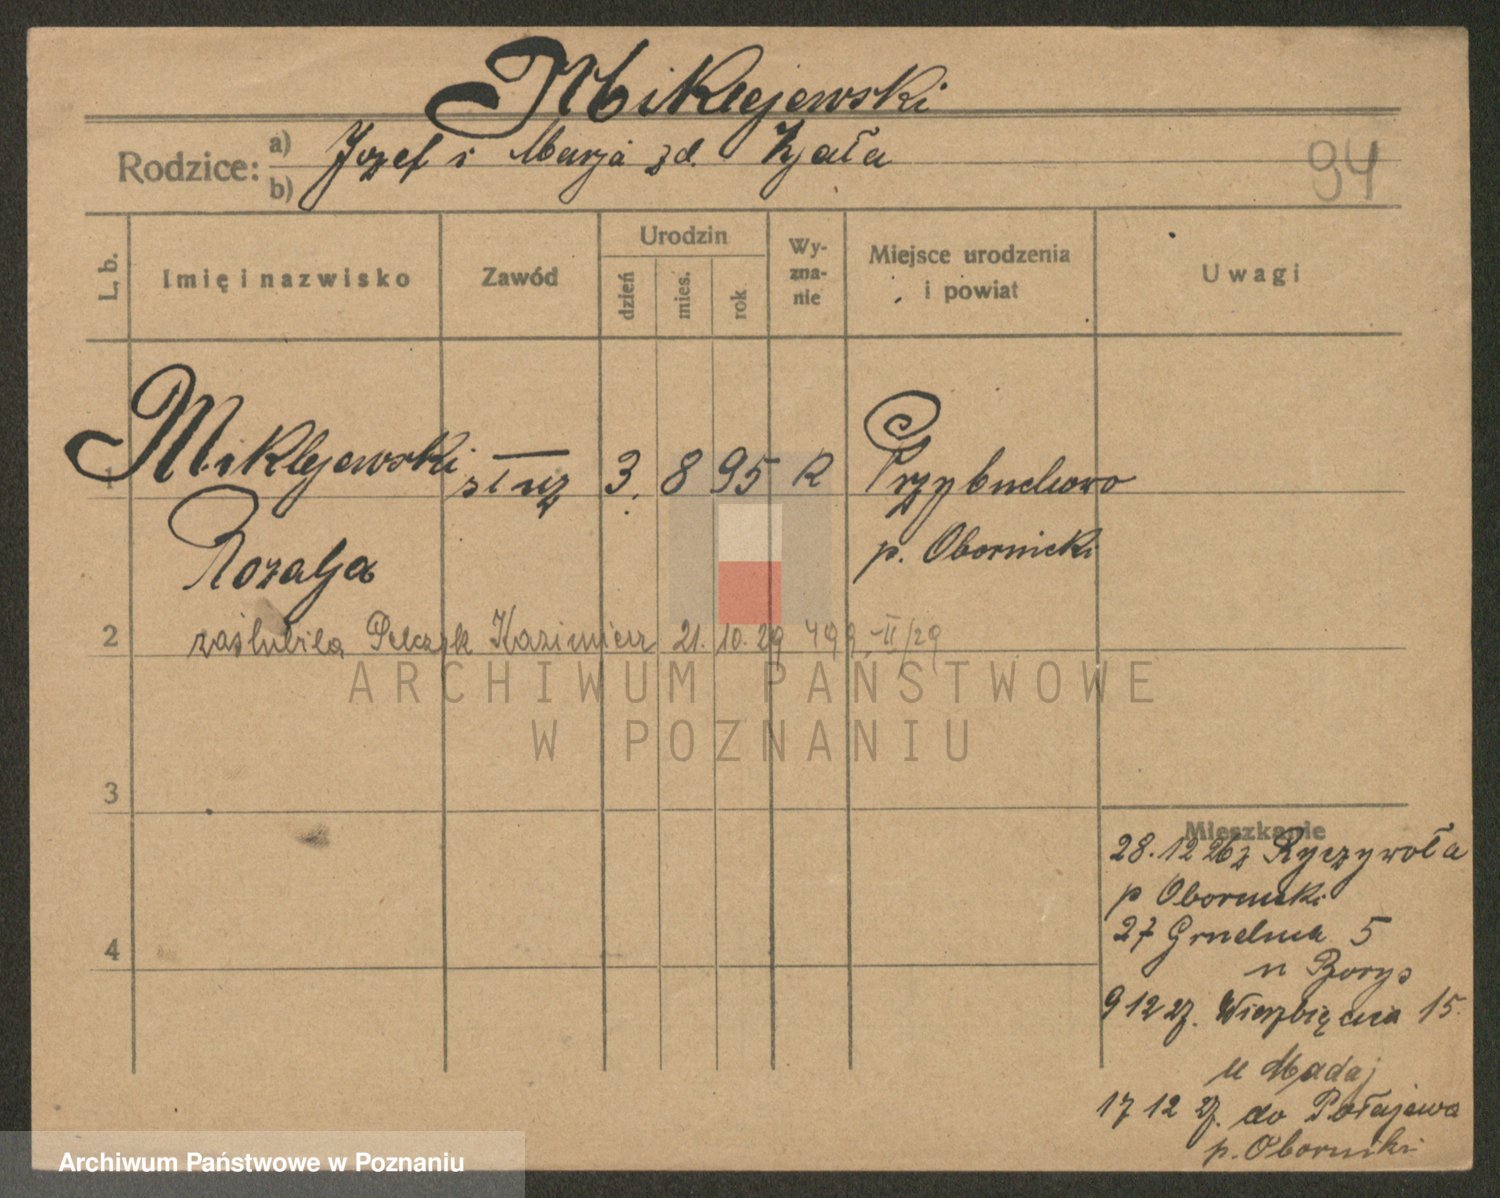 Miklejewski
Rodzice: a) b) Józef i Marja zd.
94
L. b.
Imię i nazwisko
Zawód
Urodzin
dzień
mies.
rok
Wy-
zna-
nie
Miejsce urodzenia
i powiat
Uwagi
1 Miklejewski służ 3. 8 95 R Przybuchowo
Rozalja p. Obornicki
2 zaślubiła Kazimierz 21. 10. 29 499-II/29
ARCHIWUM PAŃSTWOWE
W POZNANIU
3
Mieszkanie
28.12 26 z Ryczywoła
p Obornicki
27 Grudnia 5
u Borys
4
9 12 27. Wierzbięcice 15.
u Madaj
17 12 27. do Połajewa
p. Oborniki
Archiwum Państwowe w Poznaniu